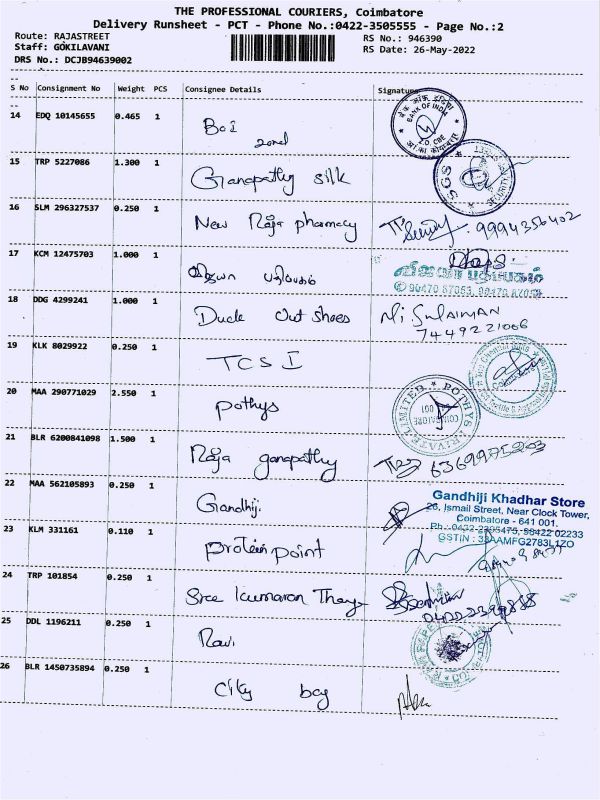 THE PROFESSIONAL COURIERS, Coimbatore
Delivery Runsheet - PCT - Phone No.:0422-3505555 - Page No.:2
Route: RAJASTREET
Staff: GOKILAVANI
DRS No.: DCJB94639002
RS No.: 946390
RS Date: 26-May-2022
S No Consignment No Weight PCS Consignee Details Signature
14 EDQ 10145655 0.465 1 BOI zonal
BANK OF INDIA
Z.O. CBE
15 TRP 5227086 1.300 1 Ganapathy silk
SGS
16 SLM 296327537 0.250 1 New Raja pharmacy 9994356402
17 KCM 12475703 1.000 1 விஜயா பதிப்பகம்
விஜயா பதிப்பகம்
18 DDG 4299241 1.000 1 Duck Out shoes M. SULAIMAN
7449221006
19 KLK 8029922 0.250 1 TCS I
20 MAA 290771029 2.550 1 pothys
POTHYS PRIVATE LIMITED
COIMBATORE
21 BLR 6200841098 1.500 1 Raja ganapathy 6369975203
22 MAA 562105893 0.250 1 Gandhiji.
Gandhiji Khadhar Store
26, Ismail Street, Near Clock Tower,
Coimbatore - 641 001.
Ph.: 0422-2395475, 98422 02233
GSTIN : 33AAMFG2783L1ZO
23 KLM 331161 0.110 1 protein point
24 TRP 101854 0.250 1 Sree kumaran Thangs
25 DDL 1196211 0.250 1 Ravi
26 BLR 1450735894 0.250 1 City bag